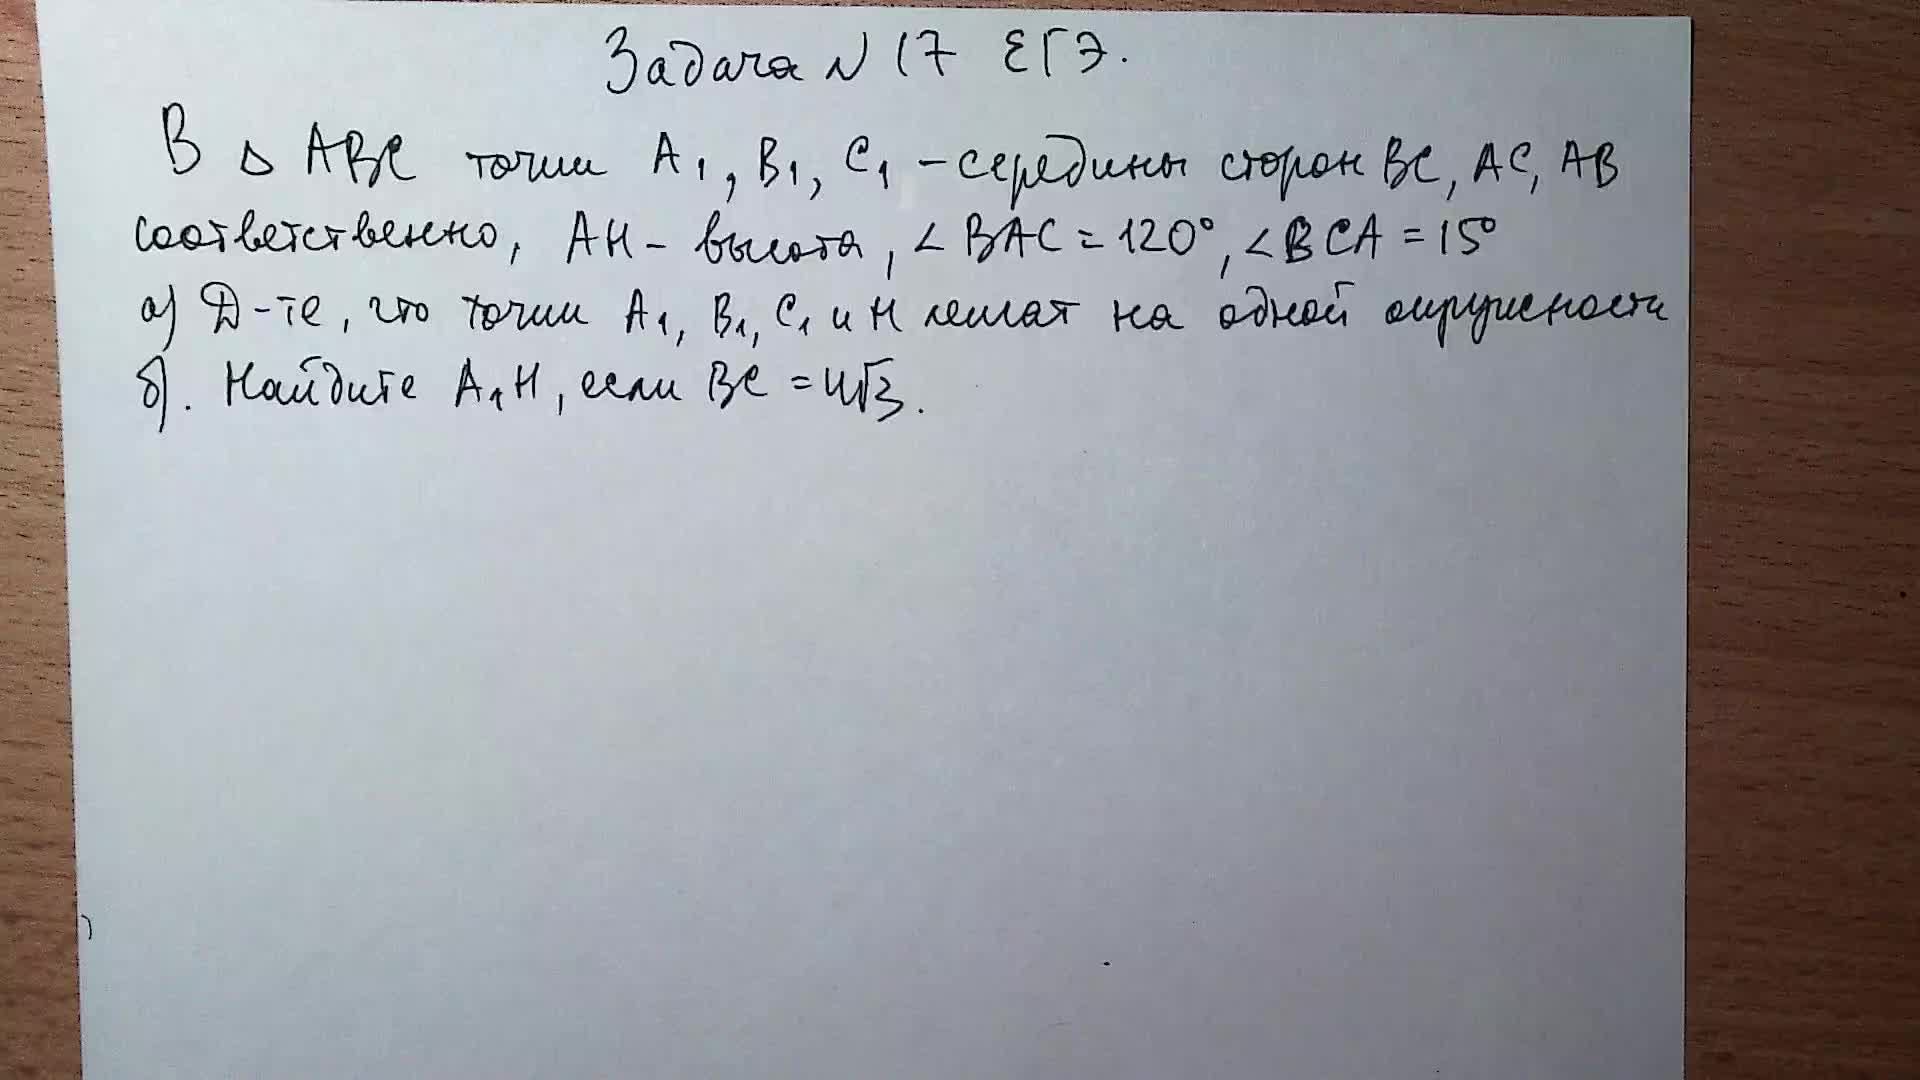 Задача N 17 ЕГЭ.
В △ ABC точки A₁, B₁, C₁ – середины сторон BC, AC, AB
соответственно, AH – высота, ∠BAC = 120°, ∠BCA = 15°
а) Д-те, что точки A₁, B₁, C₁ и H лежат на одной окружности
б). Найдите A₁H, если BC = 4√3.